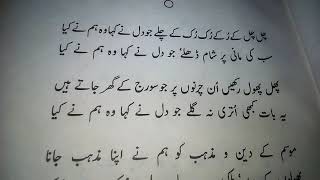 چل چل کے رُکے رُک رُک کے چلے جو دل نے کہا وہ ہم نے کیا
سب کی مانی پر شام ڈھلے جو دل نے کہا وہ ہم نے کیا
پھل پھول رکھیں اُن چرنوں پر جو سورج کے گھر جاتے ہیں
یہ بات کبھی اُتری نہ گلے جو دل نے کہا وہ ہم نے کیا
موسم کے دین و مذہب کو ہم نے اپنا مذہب جانا